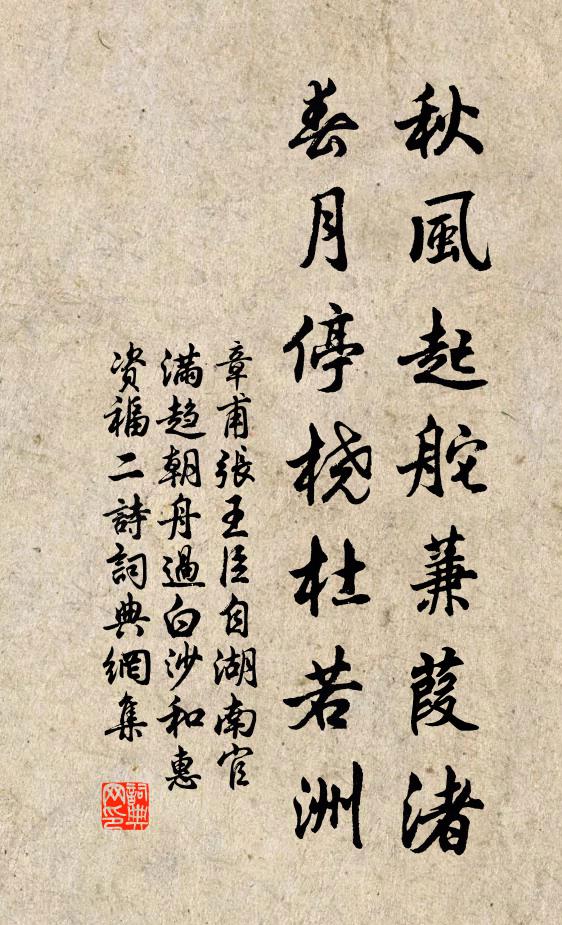 秋風起舵蒹葭渚
春月停桡杜若洲
章甫張王臣自湖南官
满趋朝舟過白沙和惠
资福二詩詞典網集
詞典网印